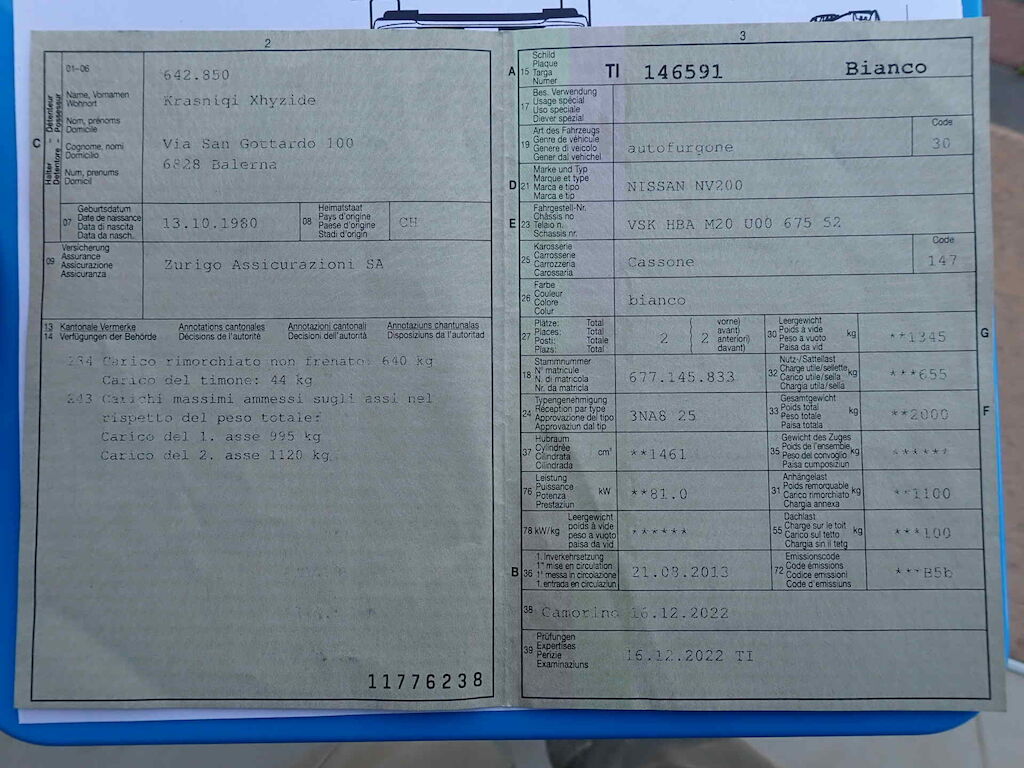 2
01-06
642.850
C
Halter - Détenteur
Detentore - Possessur
Name, Vornamen
Wohnort
Nom, prénoms
Domicile
Cognome, nomi
Domicilio
Num, prenums
Domicil
Krasniqi Xhyzide
Via San Gottardo 100
6828 Balerna
07
Geburtsdatum
Date de naissance
Data di nascita
Data da nasch.
13.10.1980
08
Heimatstaat
Pays d'origine
Paese d'origine
Stadi d'origin
CH
09
Versicherung
Assurance
Assicurazione
Assicuranza
Zurigo Assicurazioni SA
13 Kantonale Vermerke Annotations cantonales Annotazioni cantonali Annotaziuns chantunalas
14 Verfügungen der Behörde Décisions de l'autorité Decisioni dell'autorità Disposiziuns da l'autoritad
234 Carico rimorchiato non frenato: 640 kg
Carico del timone: 44 kg
243 Carichi massimi ammessi sugli assi nel
rispetto del peso totale:
Carico del 1. asse 995 kg
Carico del 2. asse 1120 kg
11776238
3
A 15
Schild
Plaque
Targa
Numer
TI 146591 Bianco
17
Bes. Verwendung
Usage spécial
Uso speciale
Diever spezial
19
Art des Fahrzeugs
Genre de véhicule
Genere di veicolo
Gener dal vehichel
autofurgone
Code
30
D 21
Marke und Typ
Marque et type
Marca e tipo
Marca e tip
NISSAN NV200
E 23
Fahrgestell-Nr.
Châssis no
Telaio n.
Schassis nr.
VSK HBA M20 U00 675 52
25
Karosserie
Carrosserie
Carrozzeria
Carossaria
Cassone
Code
147
26
Farbe
Couleur
Colore
Colur
bianco
27
Plätze: Total
Places: Total
Posti: Totale
Plazs: Total
2
2
vorne)
avant)
anteriori)
davant)
30
Leergewicht
Poids à vide
Peso a vuoto
Paisa da vid
kg
**1345
G
18
Stammnummer
N° matricule
N. di matricola
Nr. da matricla
677.145.833
32
Nutz-/Sattellast
Charge utile/sellette
Carico utile/sella
Chargia utila/sella
kg
***655
24
Typengenehmigung
Réception par type
Approvazione del tipo
Approvaziun dal tip
3NA8 25
33
Gesamtgewicht
Poids total
Peso totale
Paisa totala
kg
**2000
F
37
Hubraum
Cylindrée
Cilindrata
Cilindrada
cm³
**1461
35
Gewicht des Zuges
Poids de l'ensemble
Peso del convoglio
Paisa cumposiziun
kg
******
76
Leistung
Puissance
Potenza
Prestaziun
kW
**81.0
31
Anhängelast
Poids remorquable
Carico rimorchiato
Chargia annexa
kg
**1100
78 kW/kg
Leergewicht
poids à vide
peso a vuoto
paisa da vid
******
55
Dachlast
Charge sur le toit
Carico sul tetto
Chargia sin il tetg
kg
***100
B 36
1. Inverkehrsetzung
1re mise en circulation
1a messa in circolazione
1. entrada en circulaziun
21.08.2013
72
Emissionscode
Code émissions
Codice emissioni
Code d'emissiuns
***B5b
38
Camorino 16.12.2022
39
Prüfungen
Expertises
Perizie
Examinaziuns
16.12.2022 TI